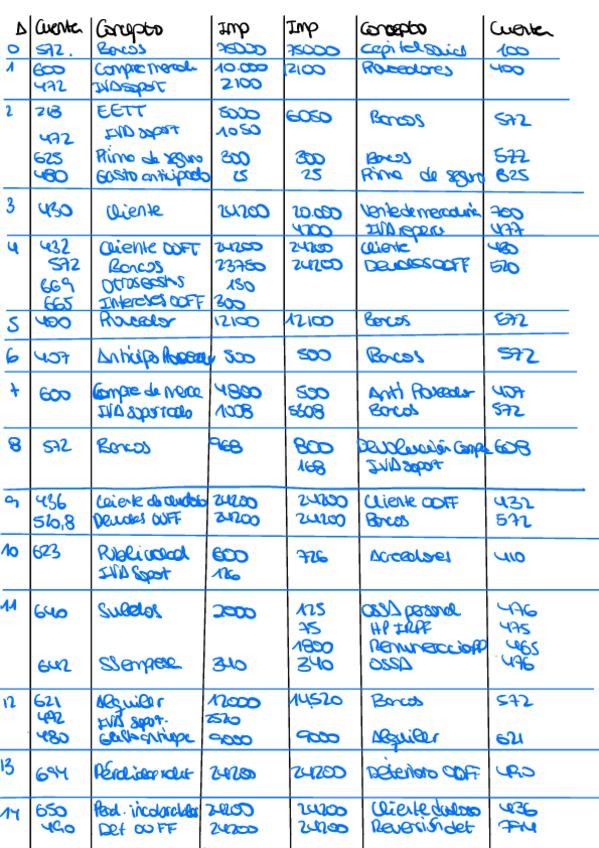 Δ Cuenta Concepto Imp Imp Concepto Cuenta
0 572. Bancos 75000 75000 Capital Social 100
1 600 Compra mercade 10.000 12100 Proveedores 400
472 IVA soport 2100
2 213 EETT 5000 6050 Bancos 572
472 IVA soport 1050
625 Prima de seguro 300 300 Bancos 572
480 Gasto anticipado 25 25 Prima de seguro 625
3 430 Cliente 24200 20.000 Venta de mercaderia 700
4200 IVA reperc 477
4 432 Cliente OOFF 24200 24200 Cliente 430
572 Bancos 23750 24200 Deudas OOFF 520
669 Otros gastos 150
665 Intereses OOFF 300
5 400 Proveedor 12100 12100 Bancos 572
6 407 Anticipo Proveedor 500 500 Bancos 572
7 600 Compra de merca 4800 500 Anti Proveedor 407
IVA soportado 1008 5308 Bancos 572
8 572 Bancos 968 800 Devolución Compra 608
168 IVA soport
9 436 Cliente de dudoso 24200 24200 Cliente OOFF 432
5208 Deudas OOFF 24200 24200 Bancos 572
10 623 Publicidad 600 726 Acreedores 410
IVA Soport 126
11 640 Sueldos 2000 125 OSSA personal 476
75 HP IRPF 475
1800 Remuneracio PP 465
642 SS empresa 340 340 OSSA 476
12 621 Alquiler 12000 14520 Bancos 572
472 IVA sopt. 2520
480 Gasto anticipa 9000 9000 Alquiler 621
13 694 Pérdidas x det 24200 24200 Deterioro OOFF 490
14 650 Perd. incobrables 24200 24200 Cliente dudoso 436
490 Det OOFF 24200 24200 Reversión det 794